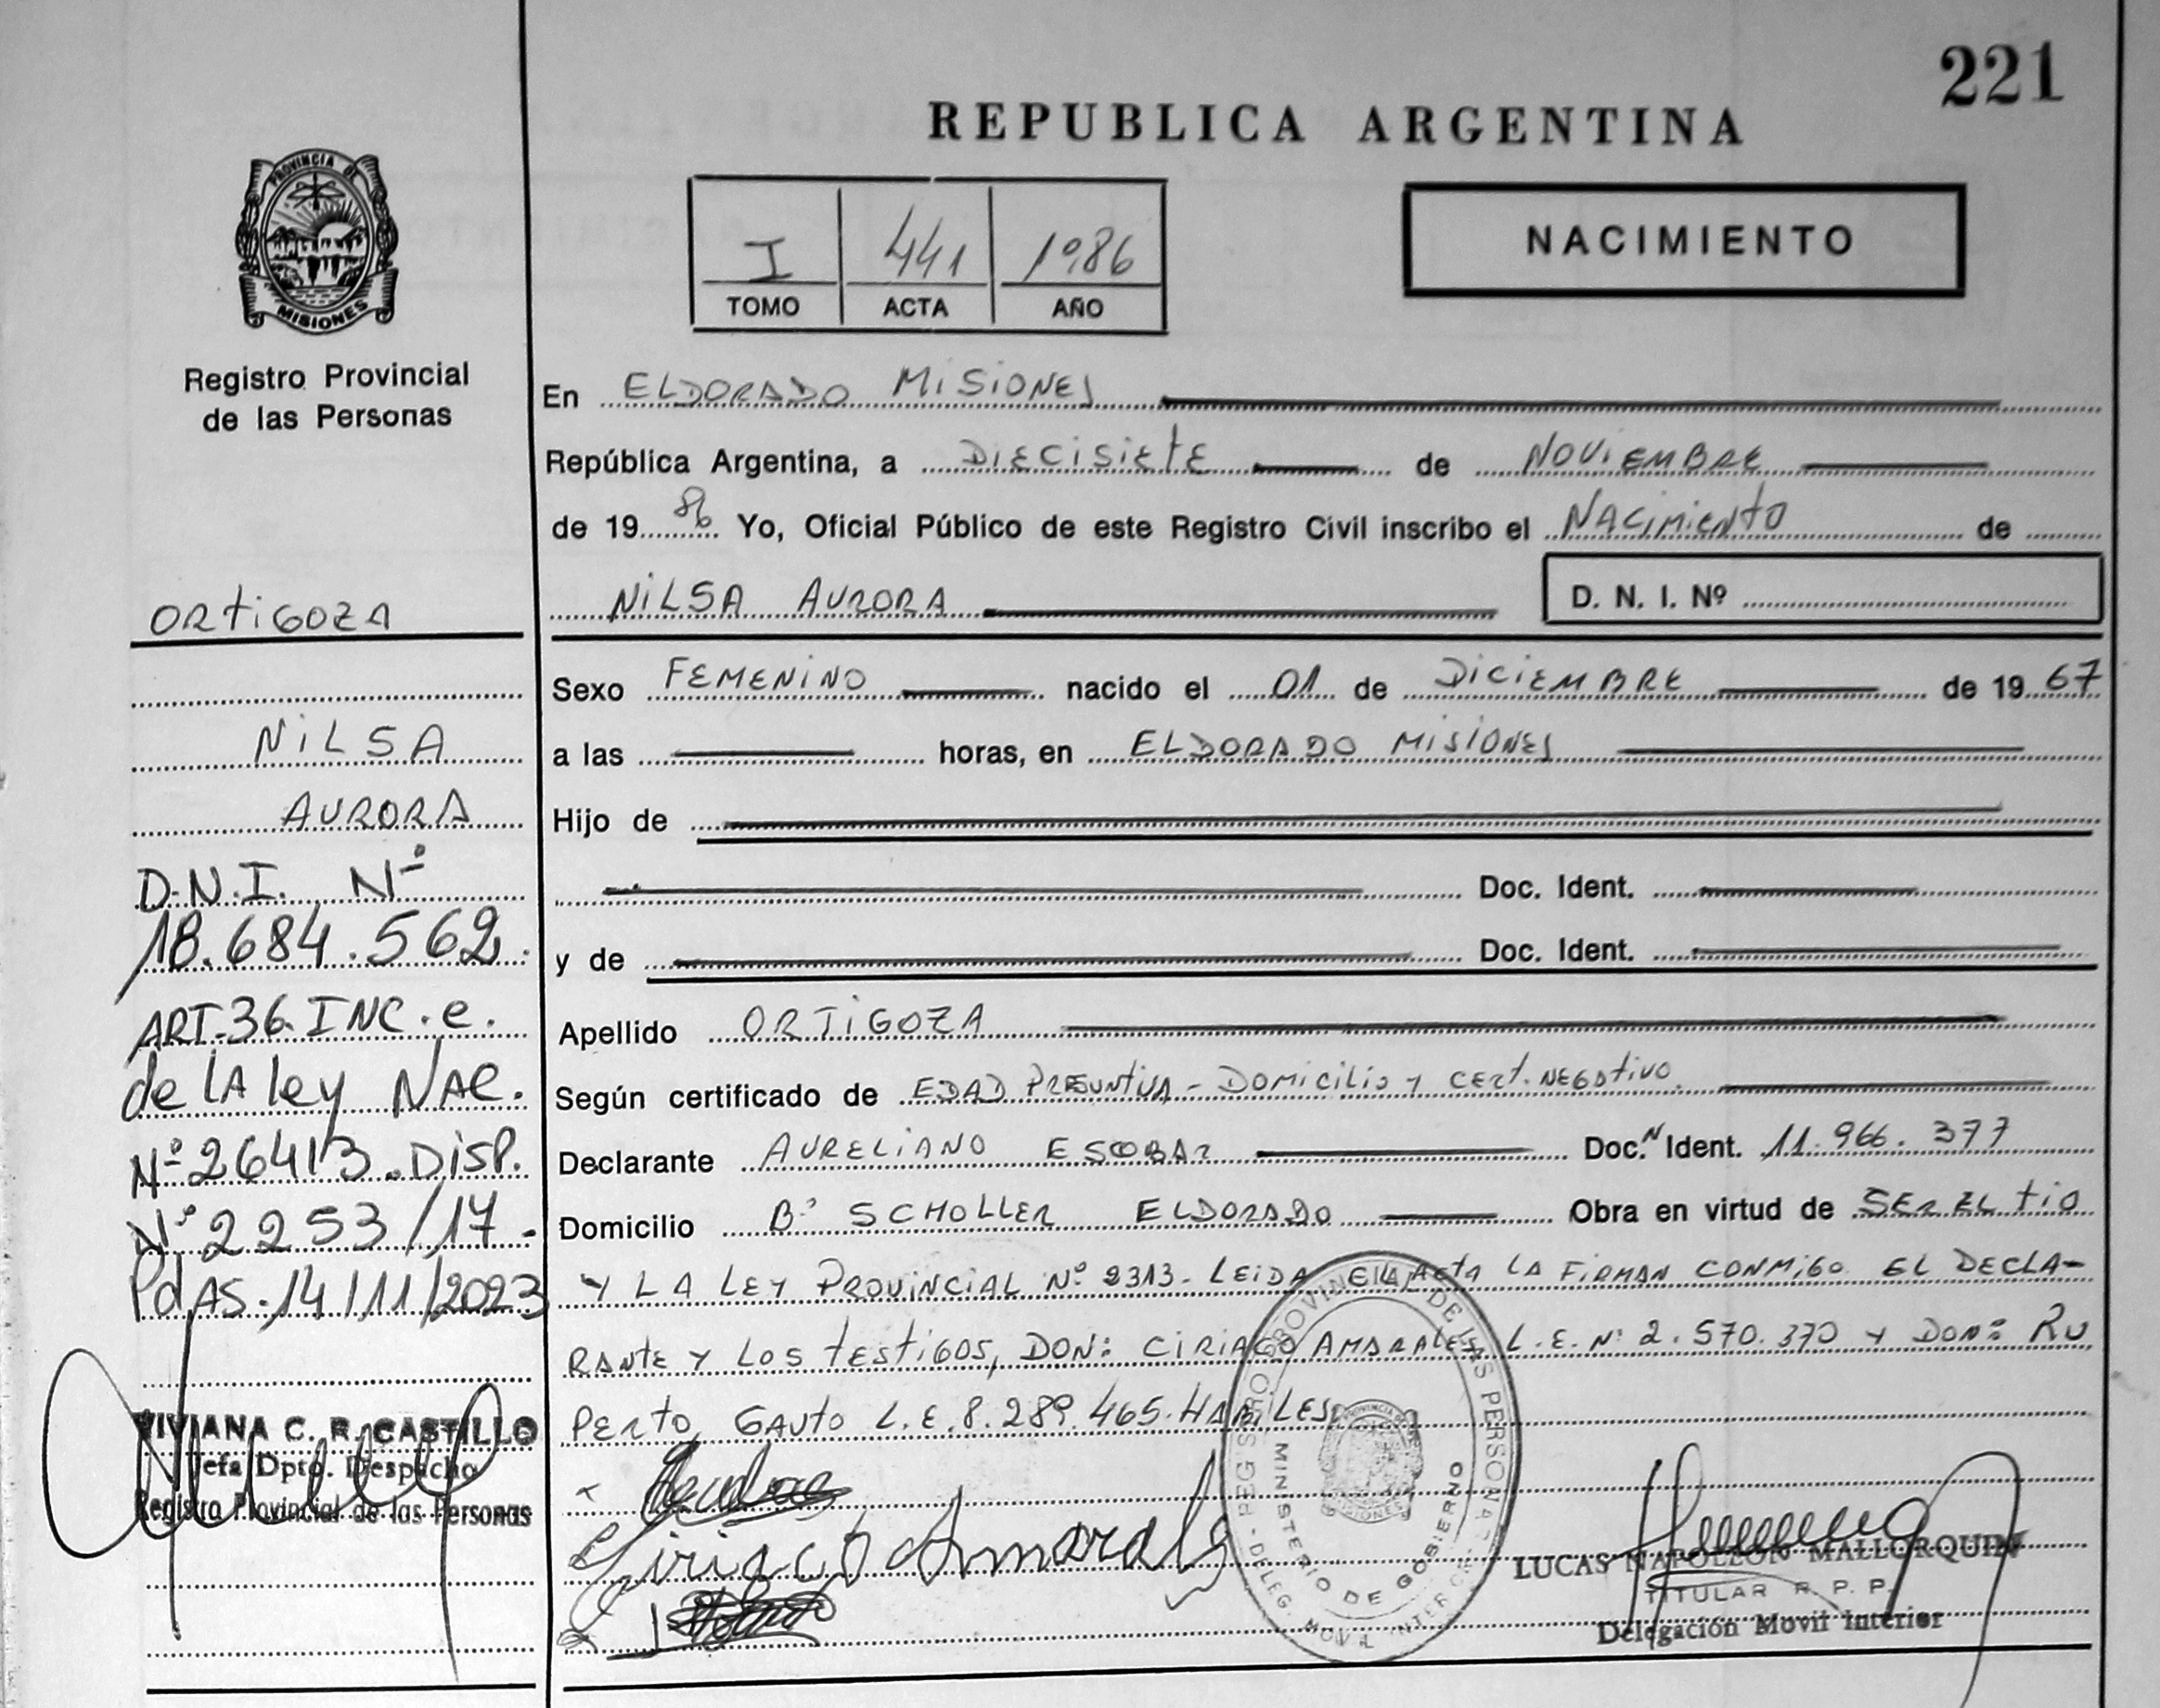 221
REPUBLICA ARGENTINA
PROVINCIA DE
MISIONES
Registro Provincial
de las Personas
I 441 1986
TOMO ACTA AÑO
NACIMIENTO
En ELDORADO MISIONES
República Argentina, a DIECISIETE de NOVIEMBRE
de 19 86 Yo, Oficial Público de este Registro Civil inscribo el NACIMIENTO de
NILSA AURORA D. N. I. Nº
Sexo FEMENINO nacido el 01 de DICIEMBRE de 19 67
a las horas, en ELDORADO MISIONES
Hijo de
Doc. Ident.
y de Doc. Ident.
Apellido ORTIGOZA
Según certificado de EDAD PRESUNTIVA - DOMICILIO Y CERT. NEGATIVO
Declarante AURELIANO ESCOBAR Doc. N Ident. 11.966.377
Domicilio Bº SCHOLLER ELDORADO Obra en virtud de SER EL TIO
Y LA LEY PROVINCIAL Nº 2313. LEIDA EL ACTA LA FIRMAN CONMIGO EL DECLA-
RANTE Y LOS TESTIGOS, DON: CIRIACO AMARALES L.E. Nº 2.570.370 Y DON: RU
PERTO GAUTO L.E. 8.289.465. HABILES
Ciriaco Amarales
REGISTRO PROVINCIAL DE LAS PERSONAS
MINISTERIO DE GOBIERNO
DELEG. MOVIL INTERIOR
LUCAS NAPOLEON MALLORQUIN
TITULAR R. P. P.
Delegación Movil Interior
ORTIGOZA
NILSA
AURORA
D.N.I. Nº
18.684.562.
ART.36.INC.e.
de LA ley NAC.
Nº 26413.DISP.
Nº 2253/17-
PdAS.14/11/2023
VIVIANA C. R. CASTILLO
Jefa Dpto. Despacho
Registro Provincial de las Personas